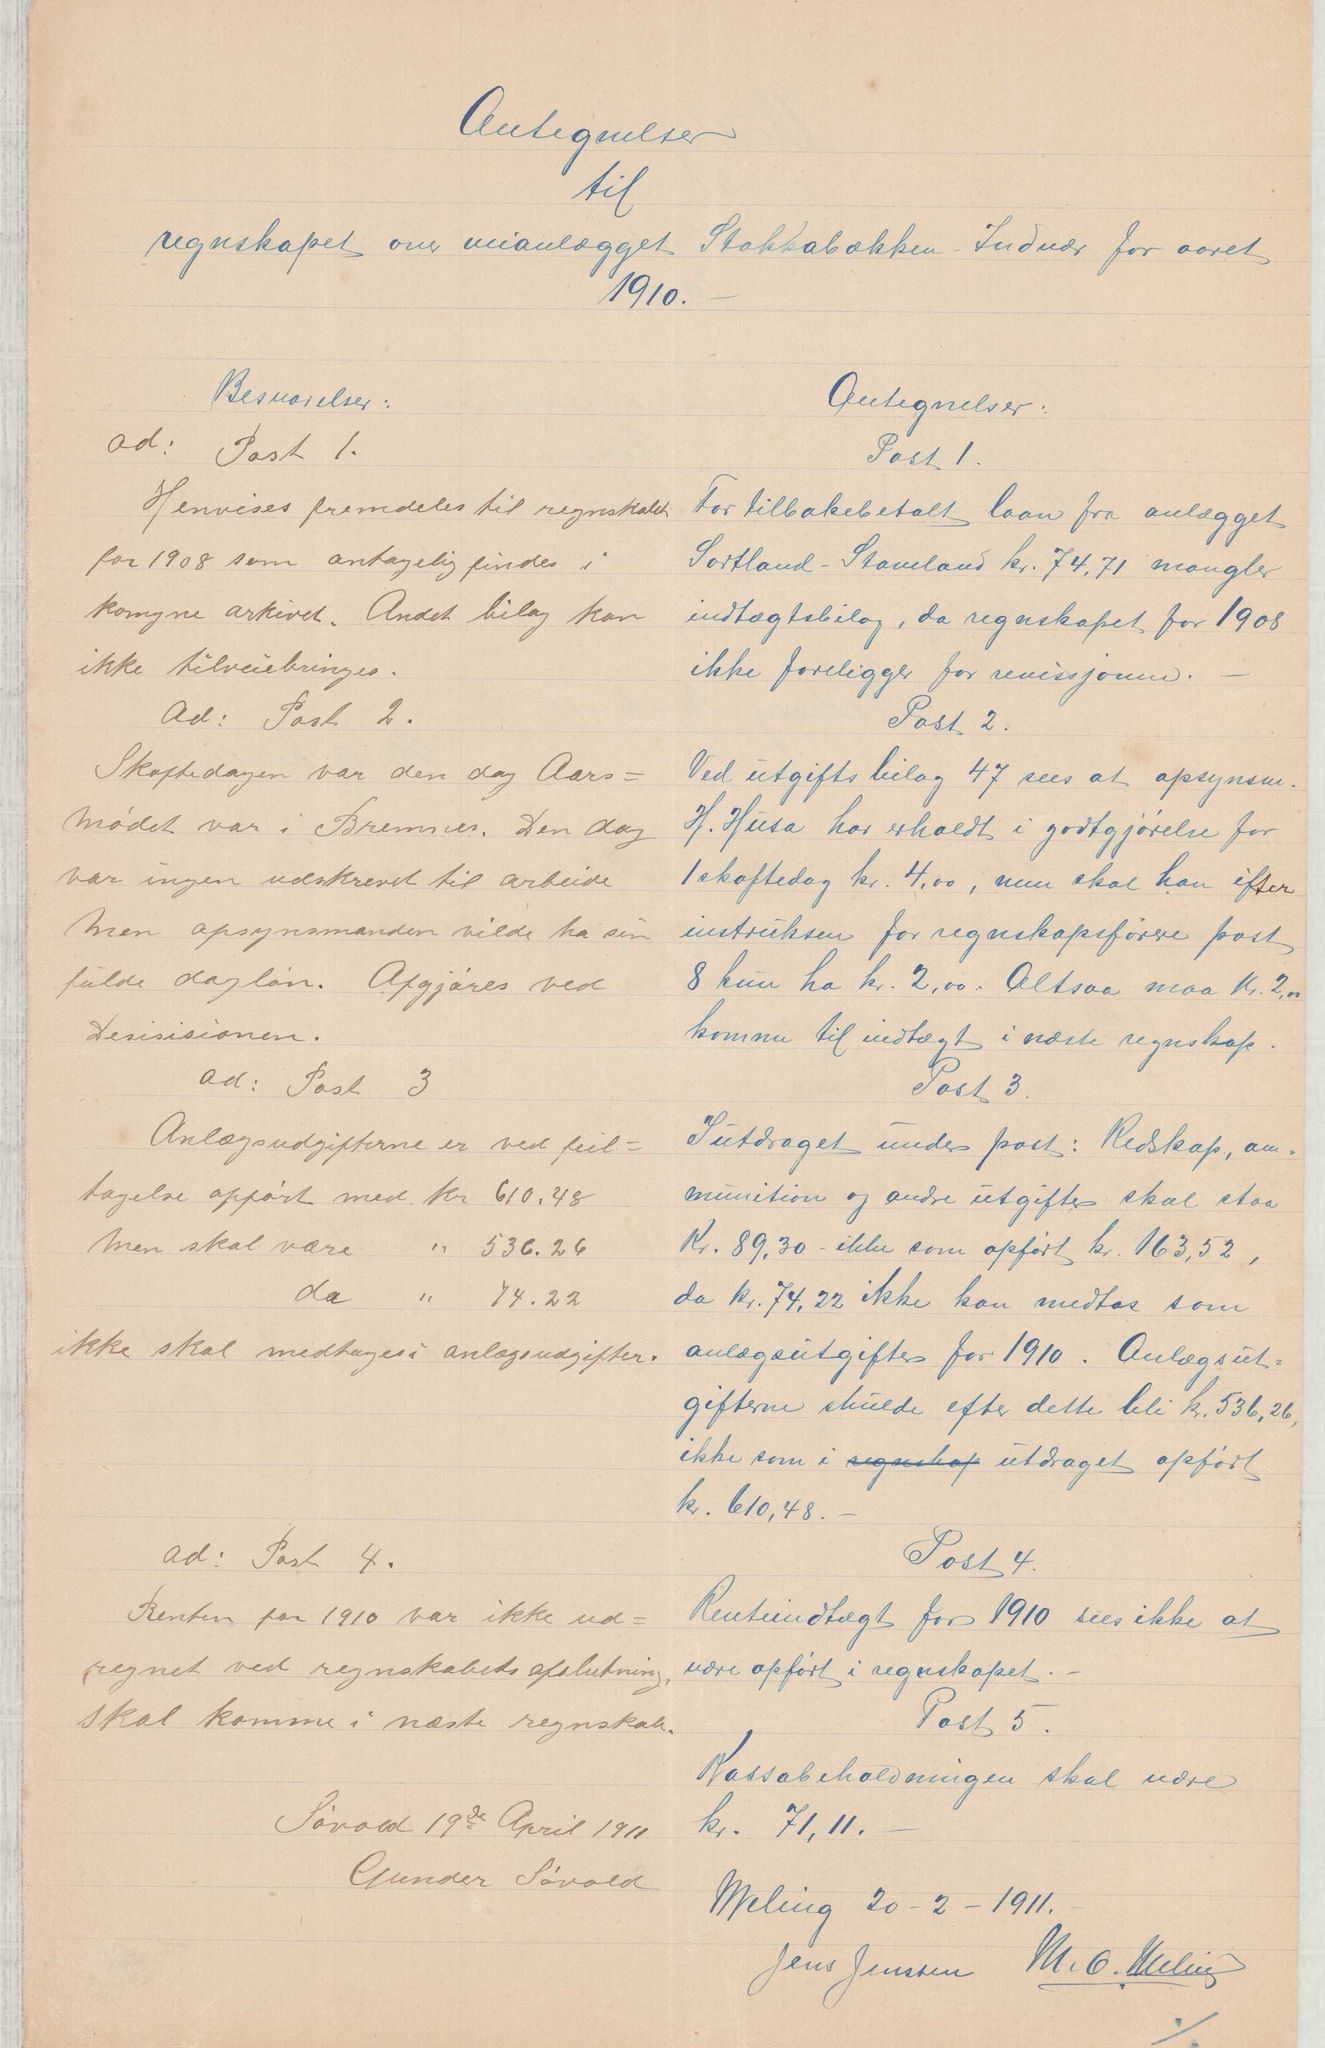 Antegnelser
til
regnskapet over veianlægget Stokkabækken - Indvær for aaret
1910. —
Besvarelser:
ad: Post 1.
Henvises fremdeles til regnskabet
for 1908 som antagelig findes i
komune arkivet. Andet bilag kan
ikke tilveiebringes.
Ad: Post 2.
Skoftedagen var den dag Aars=
mødet var i Bremnes. Den dag
var ingen udskrevet til arbeide
men opsynsmanden vilde ha sin
fulde dagløn. Afgjøres ved
Desisisionen.
ad: Post 3
Anlægsudgifterne er ved feil=
tagelse opført med kr 610.48
men skal være " 536.26
da " 74.22
ikke skal medtages i anlægsudgifter.
ad: Post 4.
Renten for 1910 var ikke ud=
regnet ved regnskabets afslutning,
skal komme i næste regnskab.
Søvold 19de April 1911
Gunder Søvold
Antegnelser:
Post 1.
For tilbakebetalt laan fra anlægget
Sortland - Stavland kr. 74,71 mangler
indtægtsbilag, da regnskapet for 1908
ikke foreligger for revissjonen. —
Post 2.
Ved utgiftsbilag 47 sees at opsynsm.
H. Husa har erholdt i godtgjørelse for
1 skoftedag kr. 4,00, men skal han efter
instruksen for regnskapsførere post
8 kun ha kr. 2,00. Altsaa maa kr. 2,00
komme til indtægt i næste regnskap.
Post 3.
I utdraget under post: Redskap, am-
munition og andre utgifter skal staa
kr. 89,30 - ikke som opført kr. 163,52,
da kr. 74,22 ikke kan medtas som
anlægsutgifter for 1910. Anlægsut=
gifterne skulde efter dette bli kr. 536,26,
ikke som i regnskap utdraget opført
kr. 610,48. —
Post 4.
Renteindtægt for 1910 sees ikke at
være opført i regnskapet. -
Post 5.
Kassabeholdningen skal være
kr. 71,11. —
Meling 20 - 2 - 1911.
Jens Jenssen M. O. Meling